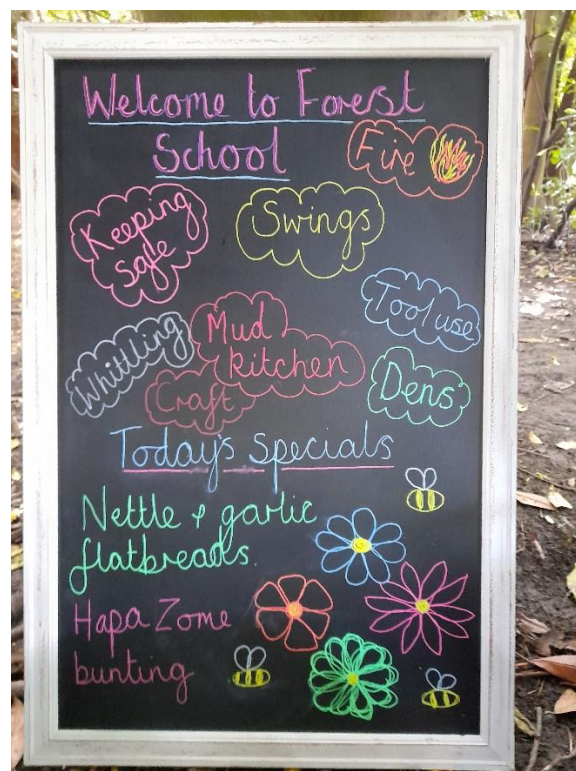 Welcome to Forest
School
Fire
Keeping
safe
Swings
Tool use
Whittling
Mud
kitchen
Craft
Dens
Today's specials
Nettle + garlic
flatbreads.
Hapa Zome
bunting